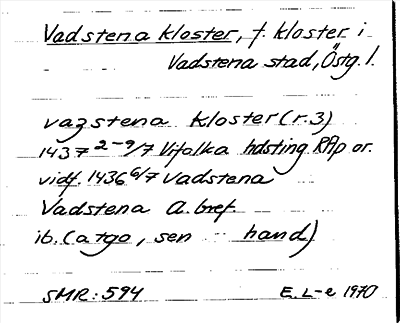 Vadstena kloster, f. kloster i
Vadstena stad, Östg. l.
vazstena kloster (r. 3)
1437 2-9/7 Vifolka hdsting RAp or.
vidf. 1436 6/7 Vadstena
Vadstena A. bref.
ib. (atgo, sen hand)
SMR: 594 E. L-e 1970